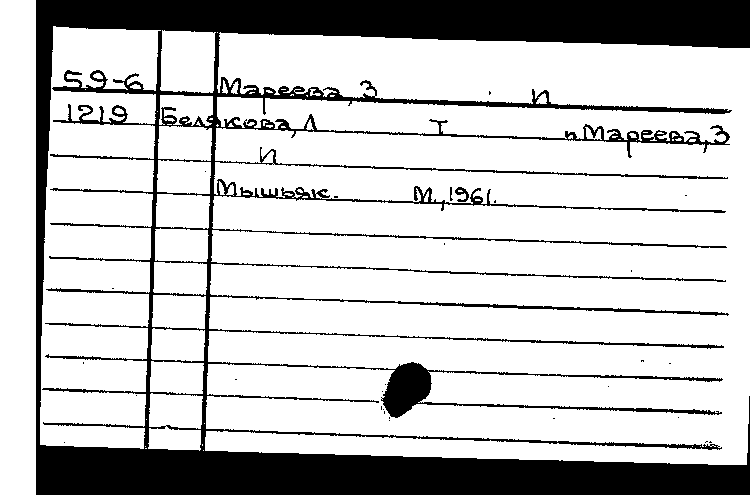 59-6 Мареева, З И
1219 Белякова, Л Т и Мареева, З
И
Мышьяк. М., 1961.